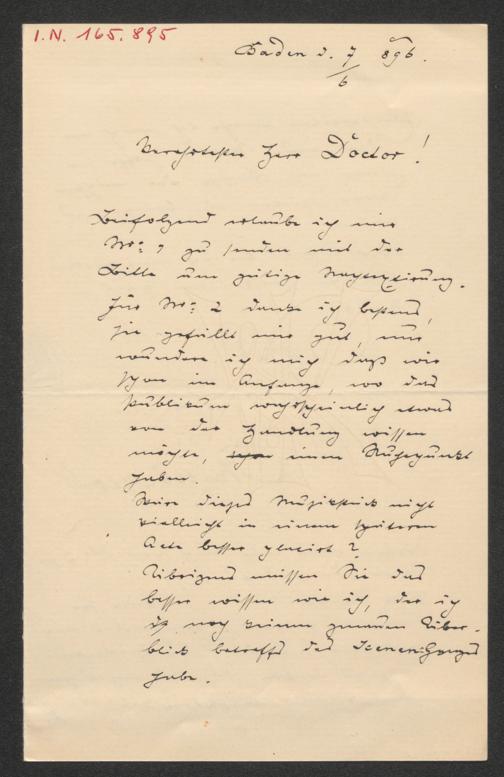 I.N. 165.895
Baden d. 7/6 896.
Verehrtester Herr Doctor!
Beifolgend erlaube ich mir
No: 7 zu senden mit der
Bitte um gütige Nachtextirung.
Für No: 2 danke ich bestens,
sie gefällt mir gut, nur
wundere ich mich daß wir
schon im Anfange, wo das
Publikum wahrscheinlich etwas
von der Handlung wissen
möchte, einen Ruhepunkt
haben.
Wäre dieses Musikstück nicht
vielleicht in einem späteren
Acte besser placirt?
Übrigens müssen Sie das
besser wissen wie ich, der ich
ja noch keinen genauen Über-
blick betreffs des Scenen-Ganges
habe.